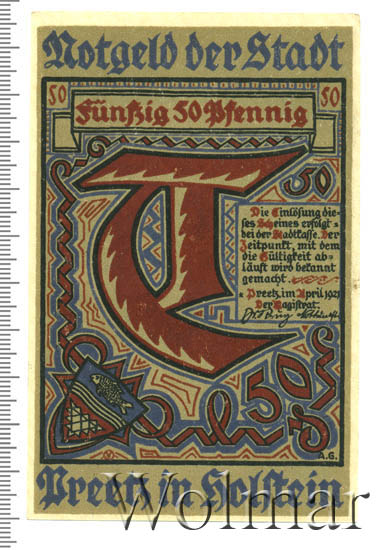 Notgeld der Stadt
50
50
Fünfzig 50 Pfennig
T
50
Die Einlösung die-
ses Scheines erfolgt
bei der Stadtkasse. Der
Zeitpunkt, mit dem
die Gültigkeit ab-
läuft wird bekannt
gemacht.
Preetz, im April 1921
Der Magistrat.
50
A.G.
Preetz in Holstein
Wolmar